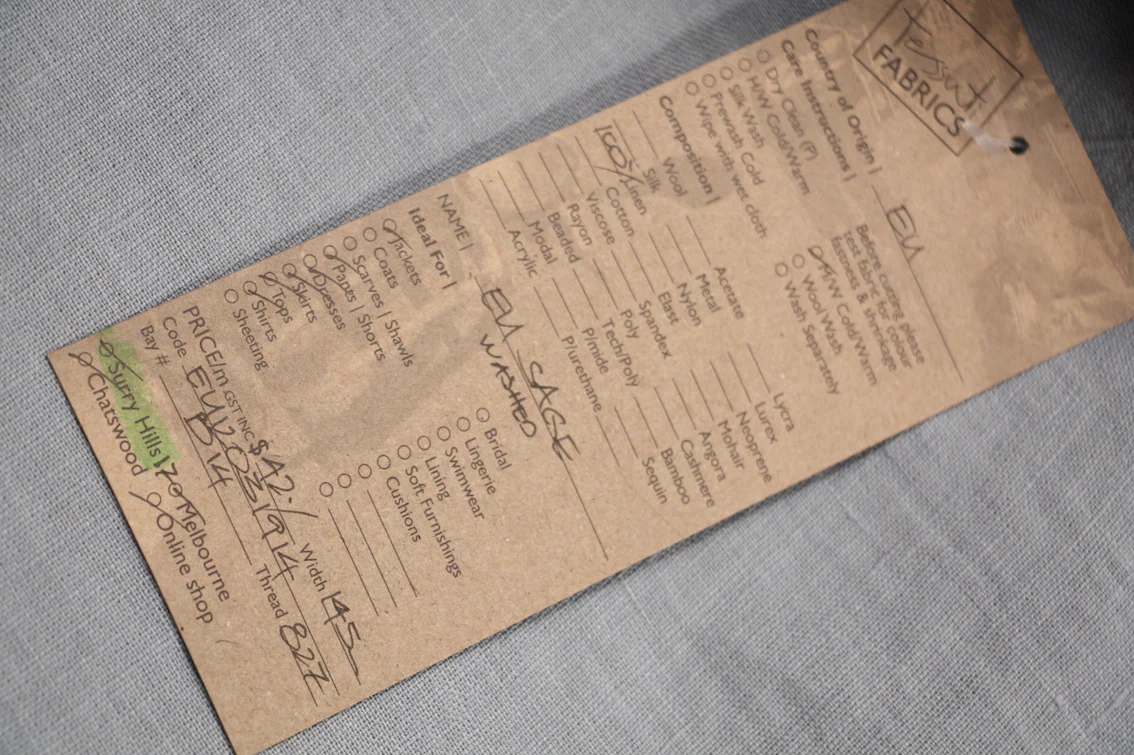 Tessuti
FABRICS
Country of Origin | EU
Care Instructions |
Dry Clean (P)
H/W Cold/Warm
Silk Wash
Prewash Cold
Wipe with wet cloth
Before cutting please
test fabric for colour
fastness & shrinkage
M/W Cold/Warm
Wool Wash
Wash Separately
Composition |
Wool
Silk
100% Linen
Cotton
Viscose
Rayon
Beaded
Modal
Acrylic
Acetate
Metal
Nylon
Elast
Spandex
Poly
Tech/Poly
P/mide
P/urethane
Lycra
Lurex
Neoprene
Mohair
Angora
Cashmere
Bamboo
Sequin
NAME | EU SAGE
WASHED
Ideal For |
Jackets
Coats
Scarves | Shawls
Pants | Shorts
Dresses
Skirts
Tops
Shirts
Sheeting
Bridal
Lingerie
Swimwear
Lining
Soft Furnishings
Cushions
PRICE/m GST INC $42./ Width 145
Code Thread 827
Bay # B14
Surry Hills Melbourne
Chatswood Online shop